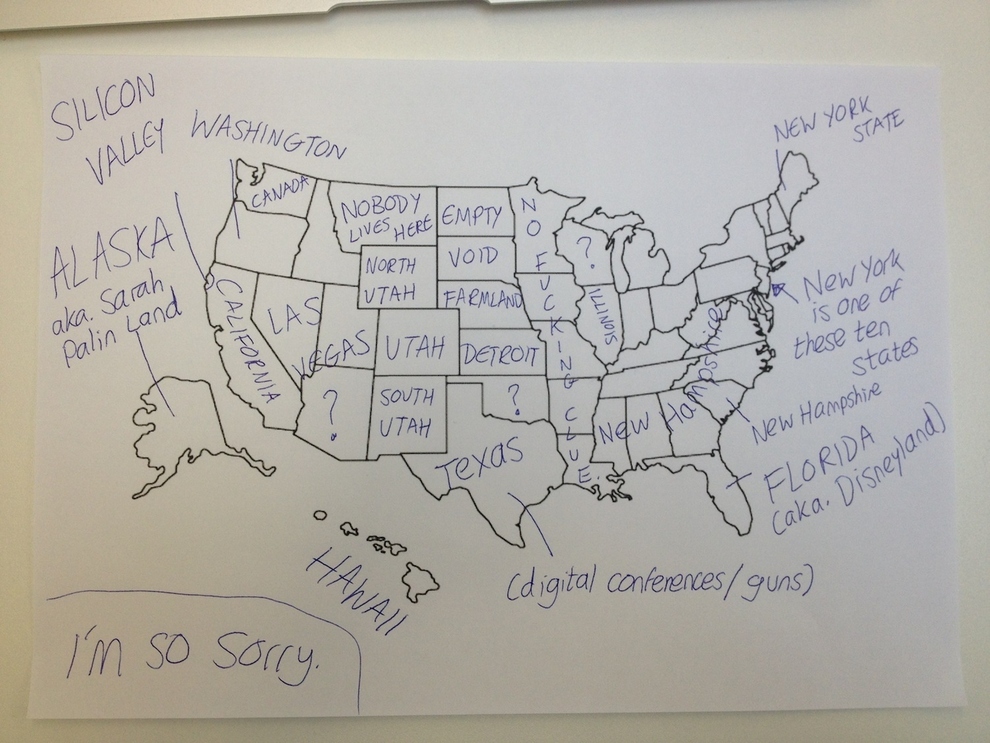 SILICON
VALLEY
WASHINGTON
NEW YORK
STATE
CANADA
NOBODY
LIVES HERE
EMPTY
NO FUCKING CLUE.
?
ALASKA
aka. Sarah
Palin Land
NORTH
UTAH
VOID
FARMLAND
ILLINOIS
CALIFORNIA
LAS
VEGAS
UTAH
DETROIT
New York
is one of
these ten
states
?
SOUTH
UTAH
?
NEW Hampshire
New Hampshire
Texas
FLORIDA
(aka. Disneyland)
HAWAII
(digital conferences/guns)
I'm so sorry.